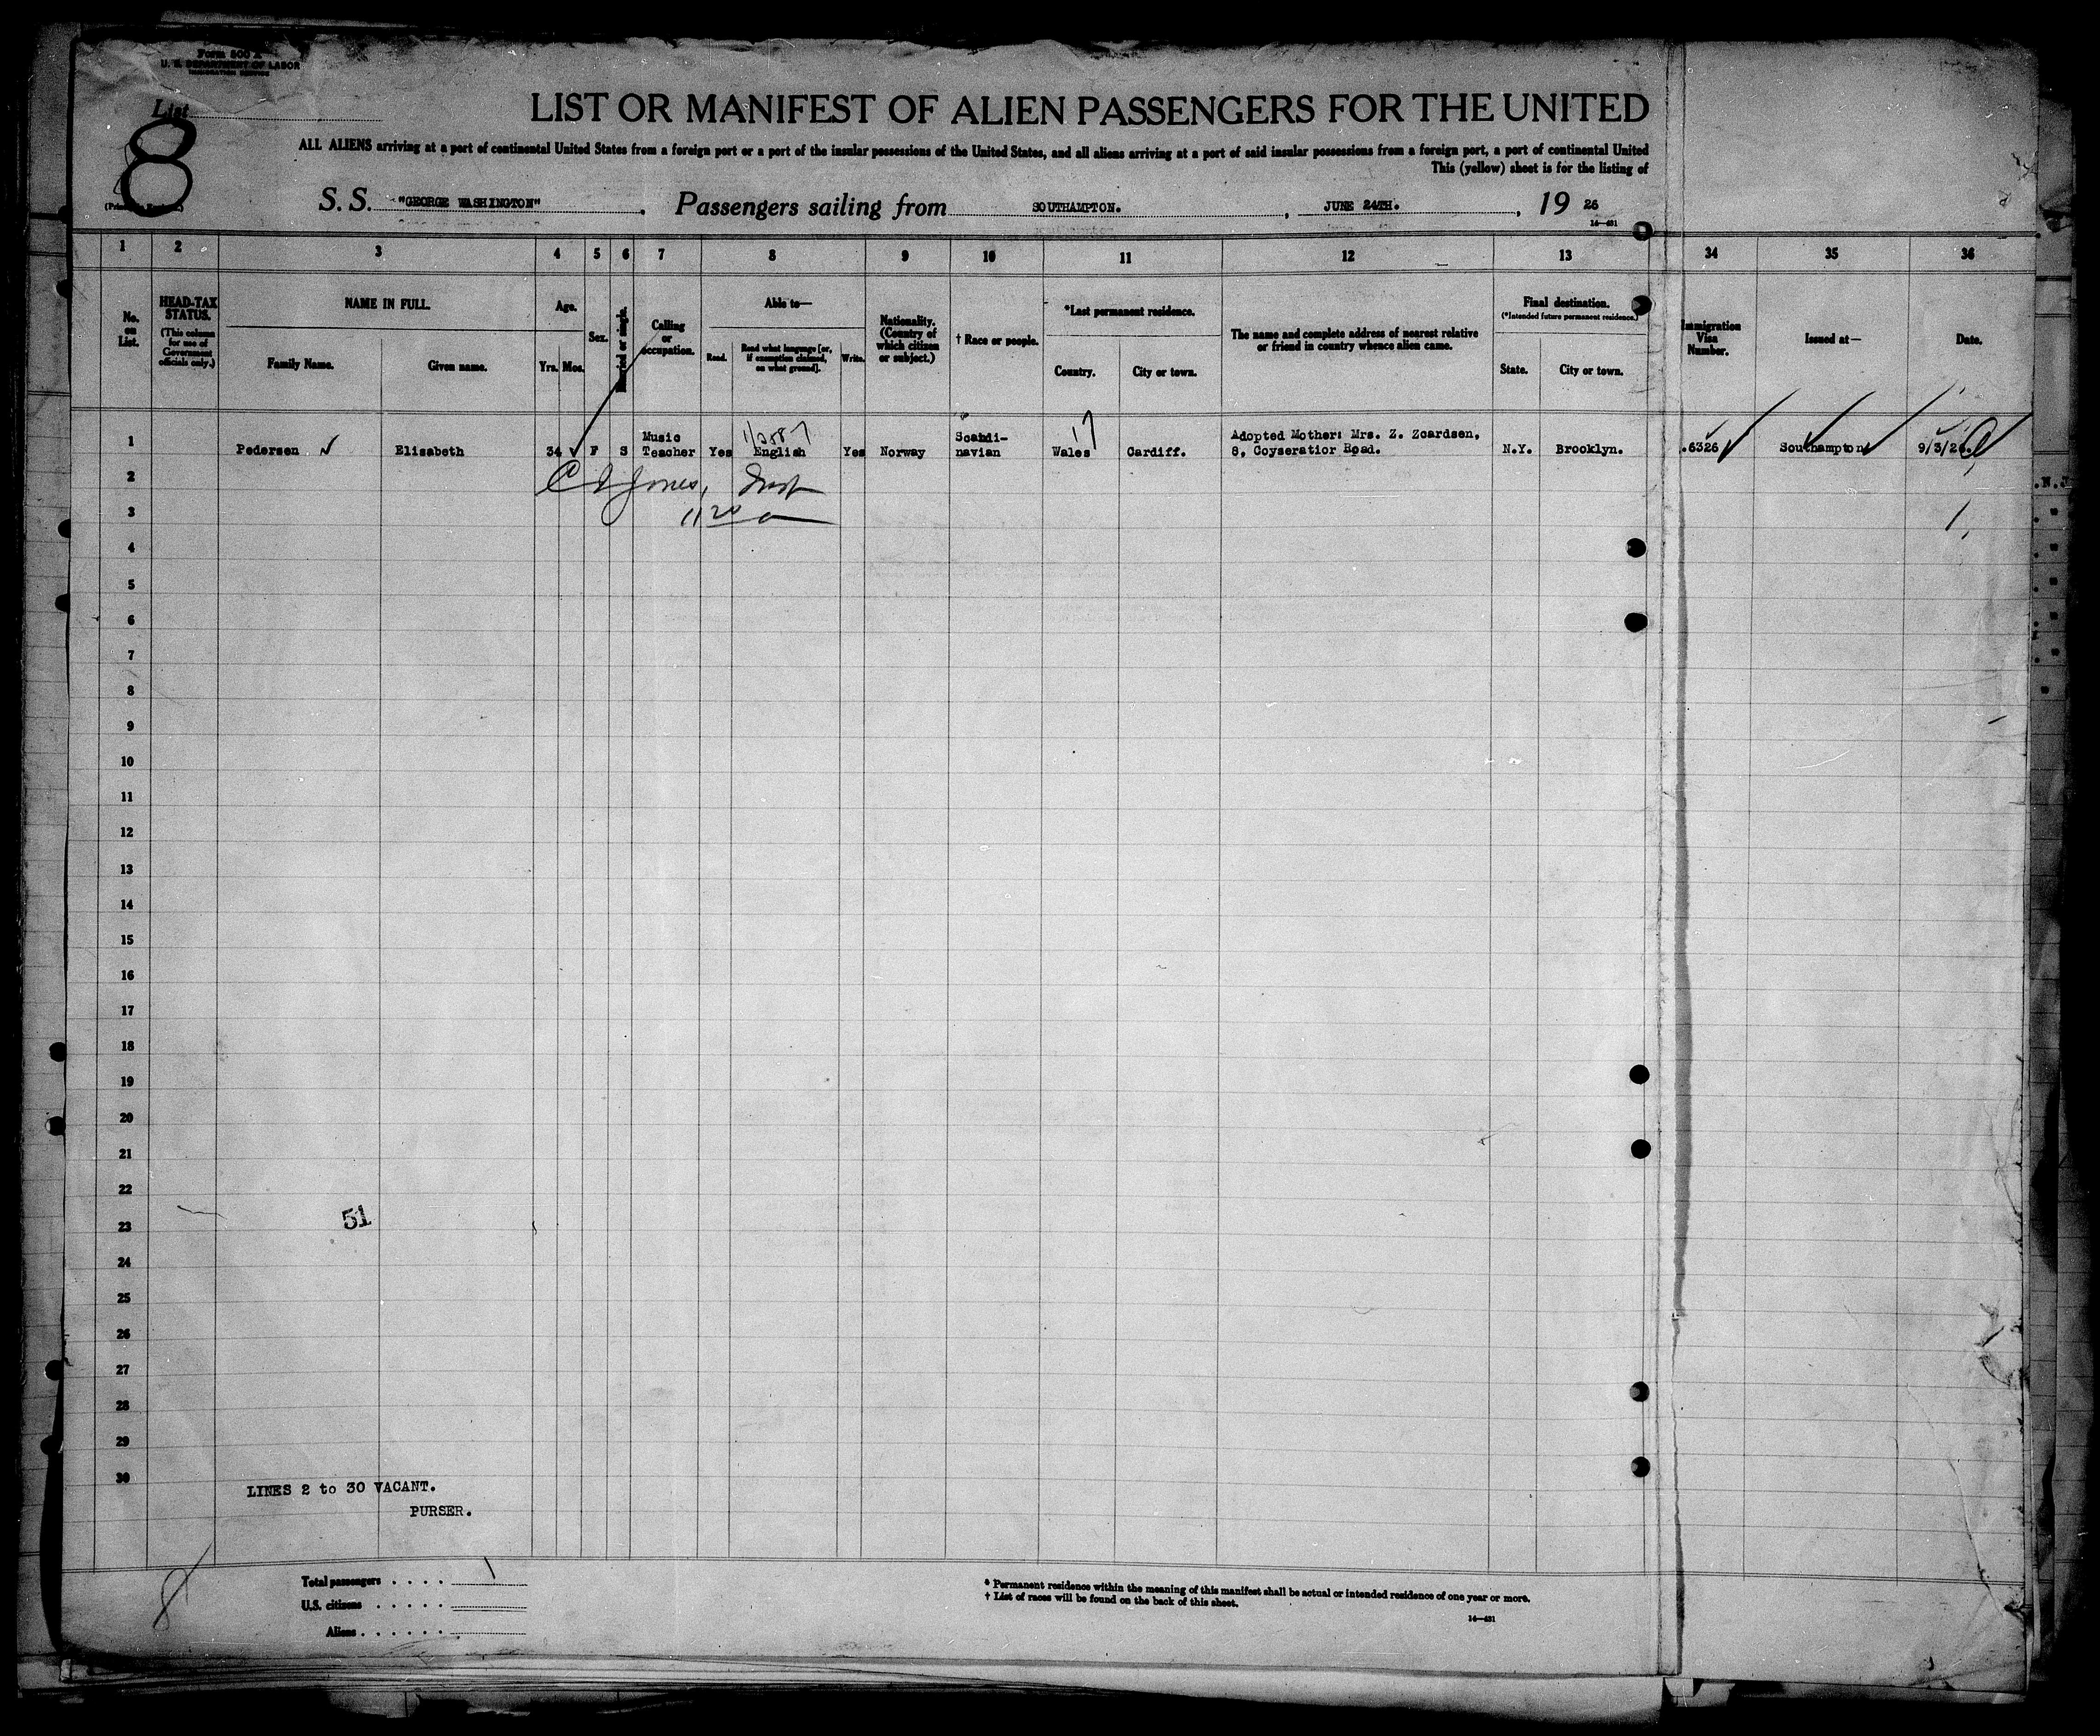 Form 500 A
U. S. DEPARTMENT OF LABOR
IMMIGRATION SERVICE
List
8
LIST OR MANIFEST OF ALIEN PASSENGERS FOR THE UNITED
ALL ALIENS arriving at a port of continental United States from a foreign port or a port of the insular possessions of the United States, and all aliens arriving at a port of said insular possessions from a foreign port, a port of continental United
This (yellow) sheet is for the listing of
S. S. "GEORGE WASHINGTON" Passengers sailing from SOUTHAMPTON. , JUNE 24TH. , 19 26
14—431
1 2 3 4 5 6 7 8 9 10 11 12 13 34 35 36
No. on List.
HEAD-TAX STATUS.
(This column for use of Government officials only.)
NAME IN FULL.
Family Name. Given name.
Age.
Yrs. Mos.
Sex.
Married or single.
Calling or occupation.
Able to—
Read. Read what language [or, if exemption claimed, on what ground]. Write.
Nationality. (Country of which citizen or subject.)
† Race or people.
*Last permanent residence.
Country. City or town.
The name and complete address of nearest relative or friend in country whence alien came.
Final destination.
(*Intended future permanent residence.)
State. City or town.
Immigration Visa Number.
Issued at—
Date.
1 Pedersen Elisabeth 34 F S Music Teacher Yes English Yes Norway Scandi-navian Wales Cardiff. Adopted Mother: Mrs. Z. Zcardsen, 8, Coyseratior Road. N.Y. Brooklyn. .6326 Southampton
17
2 Jones,
3 11 20 a
4
5
6
7
8
9
10
11
12
13
14
15
16
17
18
19
20
21
22
23
51
24
25
26
27
28
29
30
LINES 2 to 30 VACANT.
PURSER.
8
Total passengers . . . . 1
U.S. citizens . . . . .
Aliens . . . . . .
* Permanent residence within the meaning of this manifest shall be actual or intended residence of one year or more.
† List of races will be found on the back of this sheet.
14—431